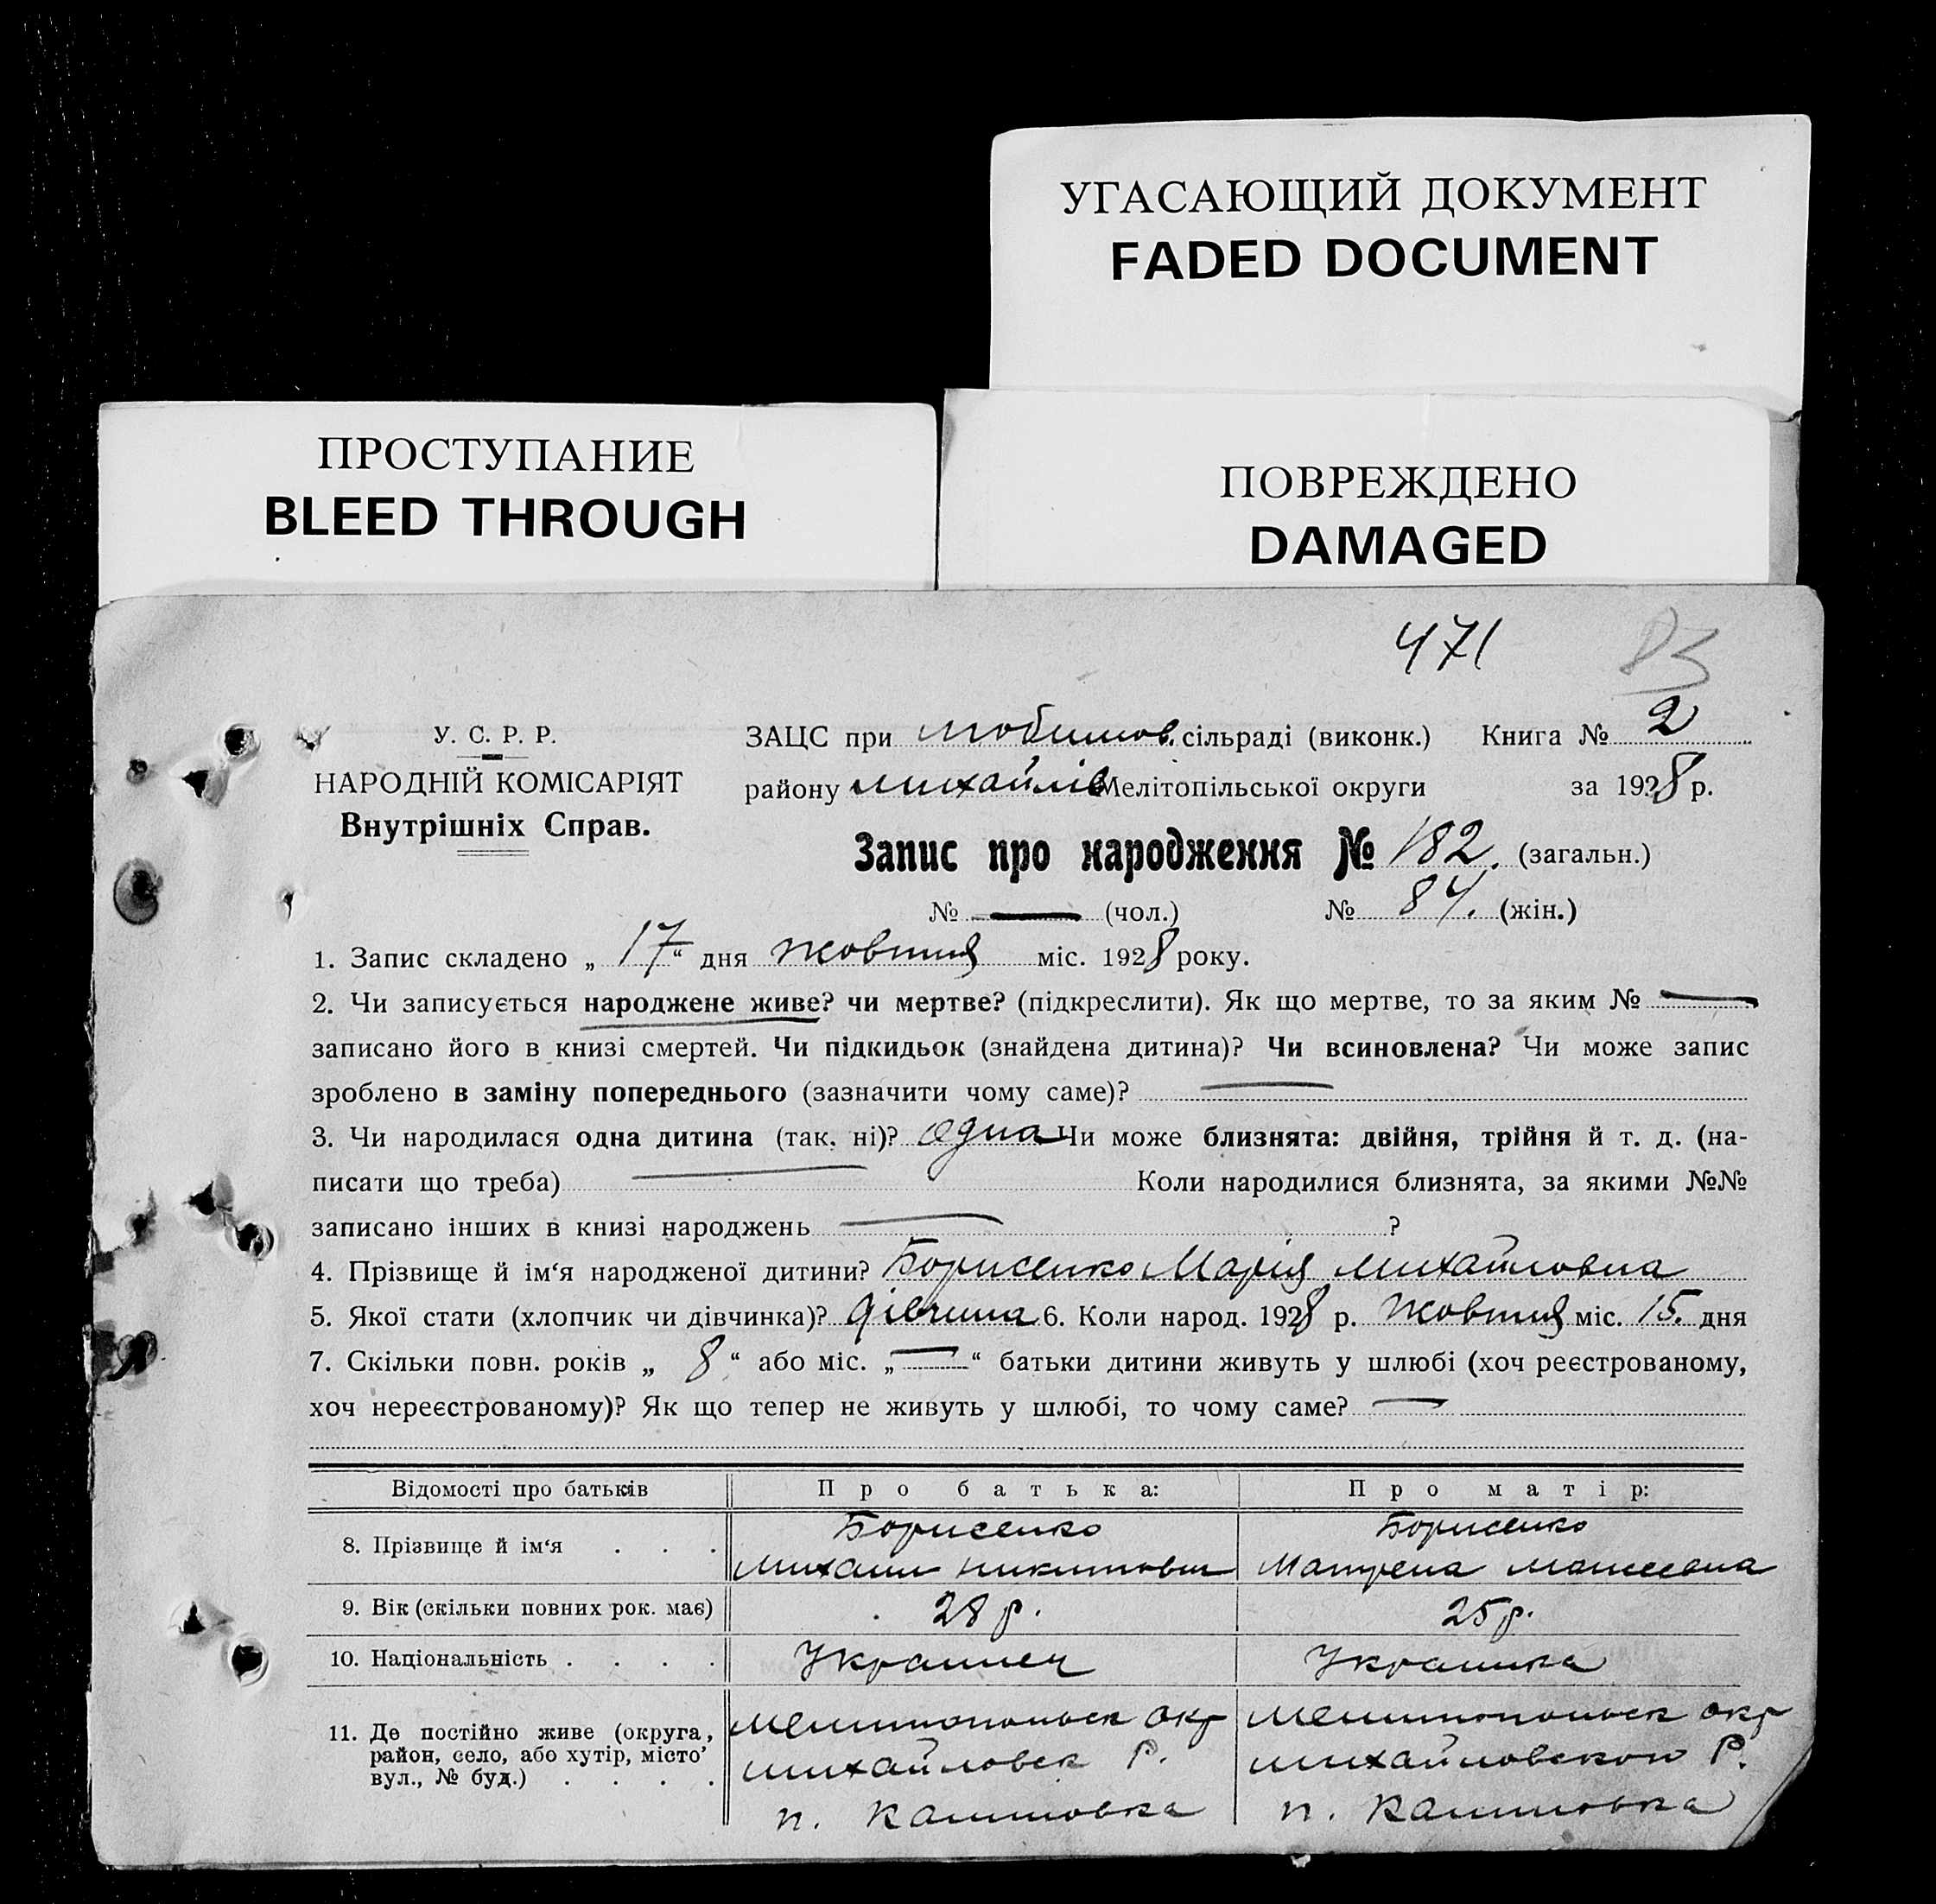 УГАСАЮЩИЙ ДОКУМЕНТ
FADED DOCUMENT
ПРОСТУПАНИЕ
BLEED THROUGH
ПОВРЕЖДЕНО
DAMAGED
471 83
У. С. Р. Р.
НАРОДНІЙ КОМІСАРІЯТ
Внутрішніх Справ.
ЗАЦС при Любимов. сільраді (виконк.) Книга № 2
району Михайлів Мелітопільської округи за 1928 р.
Запис про народження № 182. (загальн.)
№ — (чол.) № 84. (жін.)
1. Запис складено „ 17 “ дня жовтня міс. 1928 року.
2. Чи записується народжене живе? чи мертве? (підкреслити). Як що мертве, то за яким № —
записано його в книзі смертей. Чи підкидьок (знайдена дитина)? Чи всиновлена? Чи може запис
зроблено в заміну попереднього (зазначити чому саме)? —
3. Чи народилася одна дитина (так, ні)? одна Чи може близнята: двійня, трійня й т. д. (на-
писати що треба) — Коли народилися близнята, за якими №№
записано інших в книзі народжень — ?
4. Прізвище й ім‘я народженої дитини? Борисенко Марія Михайловна
5. Якої стати (хлопчик чи дівчинка)? дівчина 6. Коли народ. 1928 р. жовтня міс. 15. дня
7. Скільки повн. років „ 8 “ або міс. „ — “ батьки дитини живуть у шлюбі (хоч реєстрованому,
хоч нереєстрованому)? Як що тепер не живуть у шлюбі, то чому саме? —
Відомості про батьків Про батька: Про матір:
8. Прізвище й ім‘я . . . Борисенко Михаил Никитович Борисенко Матрена
9. Вік (скільки повних рок. має) 28 р. 25 р.
10. Національність . . . . Украинец Украинка
11. Де постійно живе (округа, Мелитопольск окр Мелитопольск окр
район, село, або хутір, місто’ Михайловск Р. Михайловского Р.
вул., № буд.) . . . . п. п.